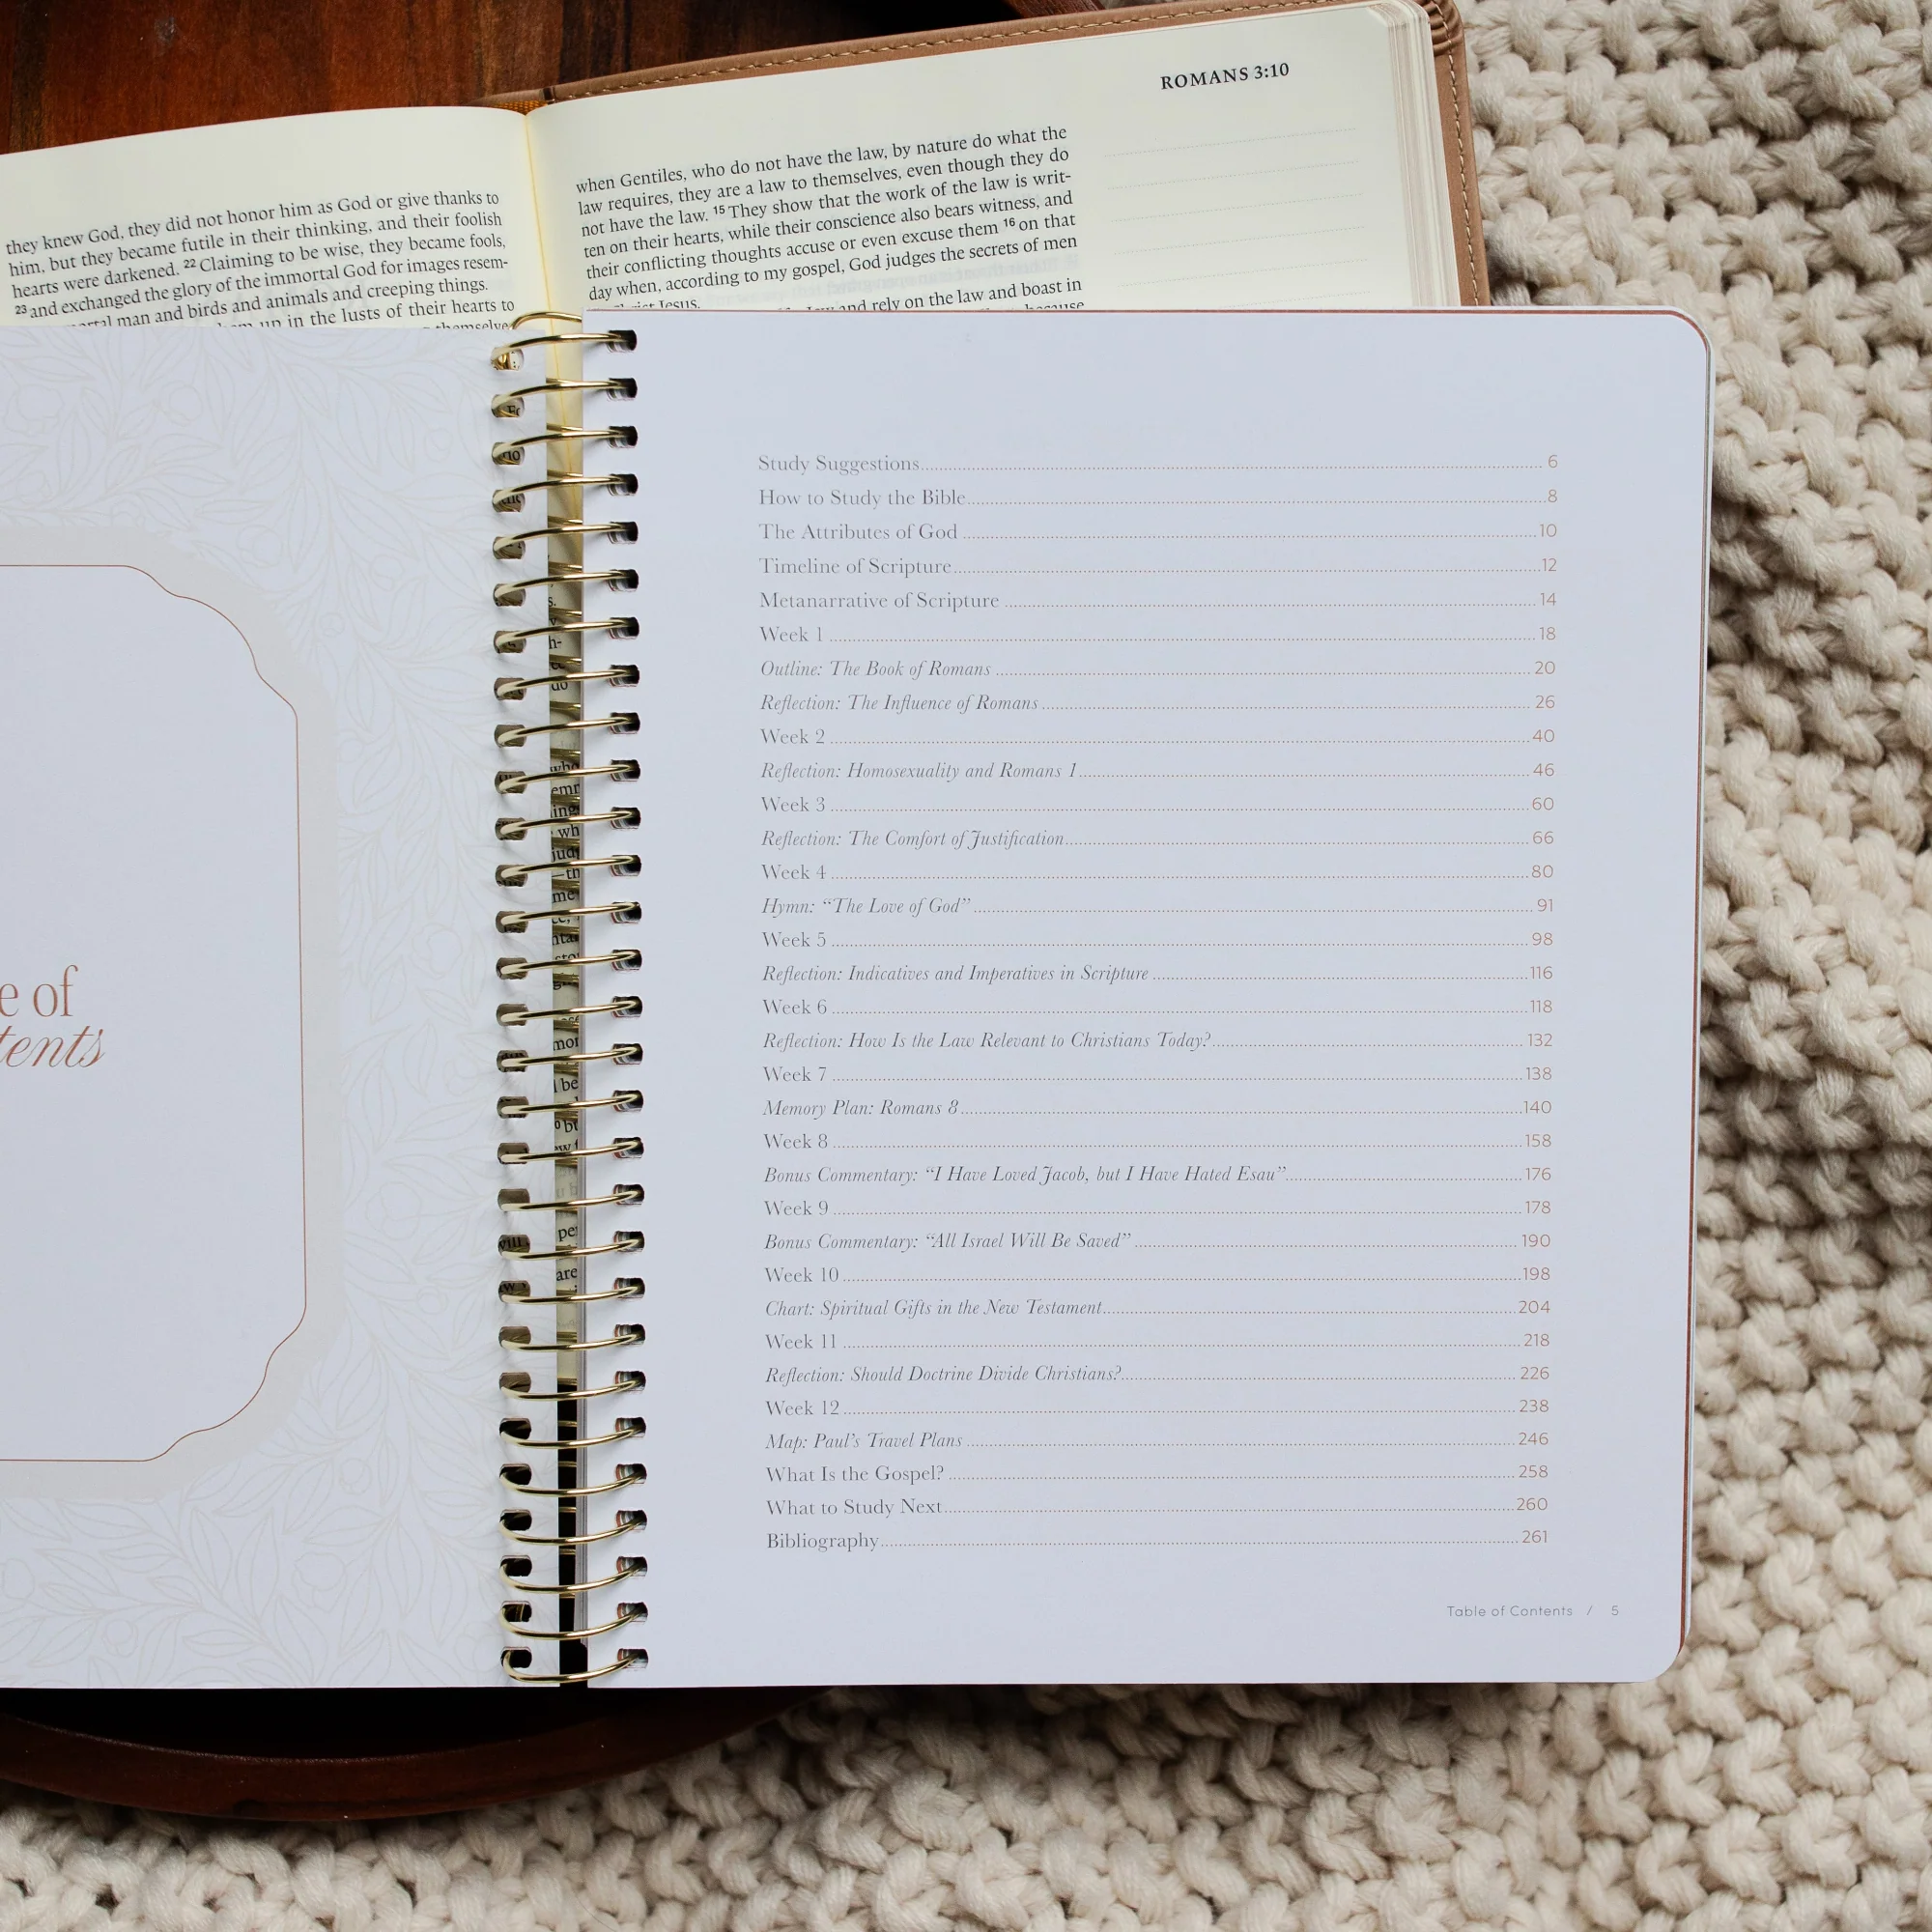 ROMANS 3:10
they knew God, they did not honor him as God or give thanks to
him, but they became futile in their thinking, and their foolish
hearts were darkened. 22 Claiming to be wise, they became fools,
23 and exchanged the glory of the immortal God for images resem-
man and birds and animals and creeping things.
up in the lusts of their hearts to
when Gentiles, who do not have the law, by nature do what the
law requires, they are a law to themselves, even though they do
not have the law. 15 They show that the work of the law is writ-
ten on their hearts, while their conscience also bears witness, and
their conflicting thoughts accuse or even excuse them 16 on that
day when, according to my gospel, God judges the secrets of men
Jesus.
and rely on the law and boast in
because
e of
tents
Study Suggestions 6
How to Study the Bible 8
The Attributes of God 10
Timeline of Scripture 12
Metanarrative of Scripture 14
Week 1 18
Outline: The Book of Romans 20
Reflection: The Influence of Romans 26
Week 2 40
Reflection: Homosexuality and Romans 1 46
Week 3 60
Reflection: The Comfort of Justification 66
Week 4 80
Hymn: “The Love of God” 91
Week 5 98
Reflection: Indicatives and Imperatives in Scripture 116
Week 6 118
Reflection: How Is the Law Relevant to Christians Today? 132
Week 7 138
Memory Plan: Romans 8 140
Week 8 158
Bonus Commentary: “I Have Loved Jacob, but I Have Hated Esau” 176
Week 9 178
Bonus Commentary: “All Israel Will Be Saved” 190
Week 10 198
Chart: Spiritual Gifts in the New Testament 204
Week 11 218
Reflection: Should Doctrine Divide Christians? 226
Week 12 238
Map: Paul’s Travel Plans 246
What Is the Gospel? 258
What to Study Next 260
Bibliography 261
Table of Contents / 5